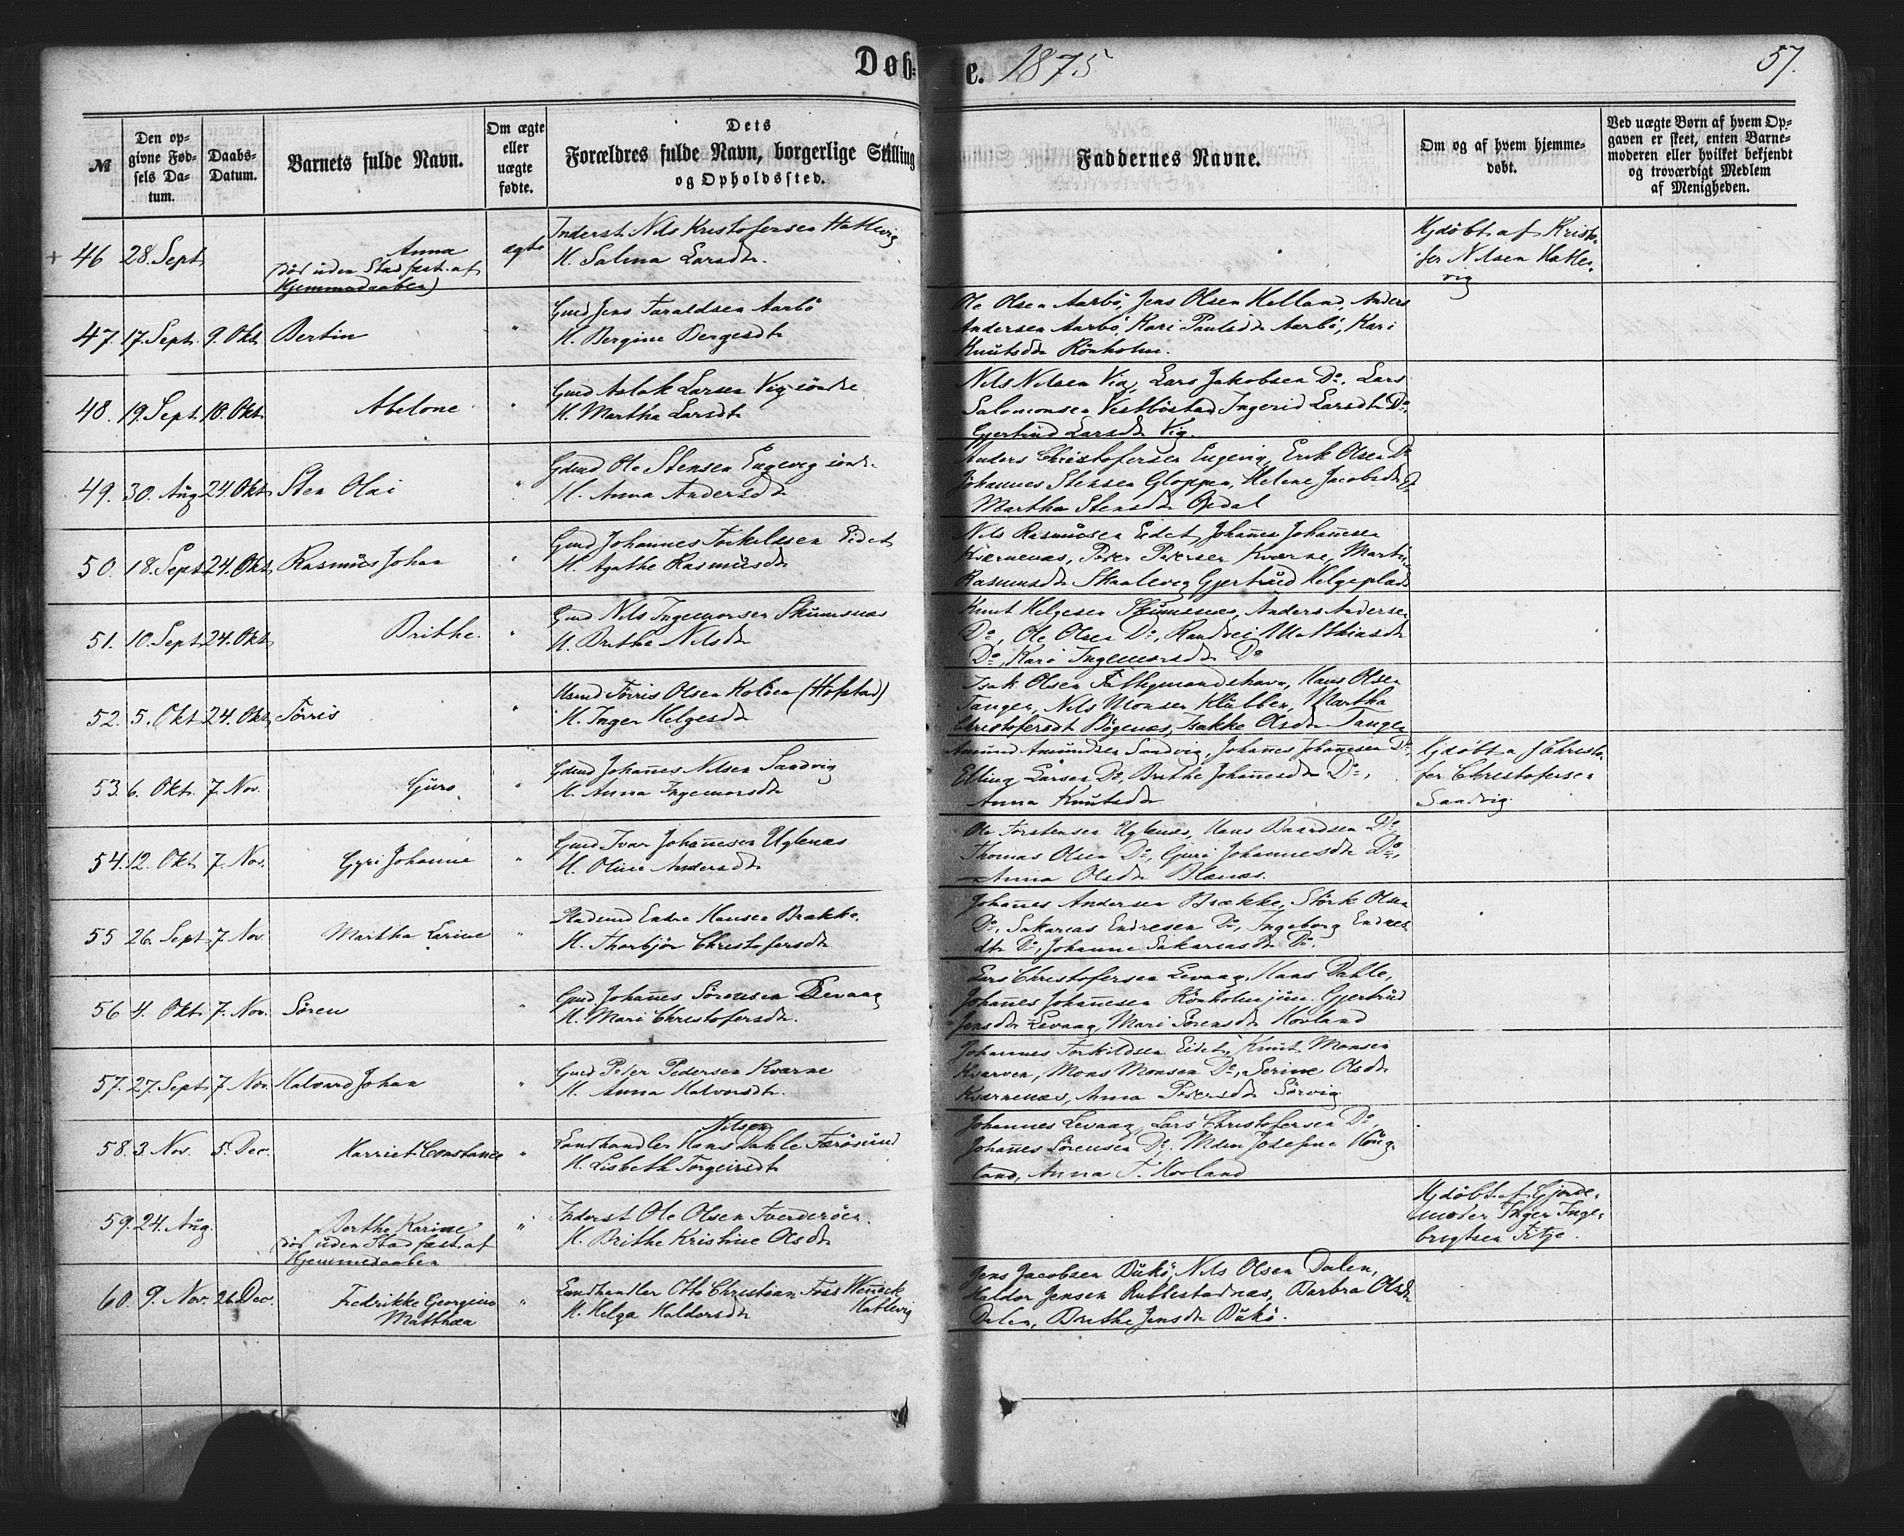 Døb- e. 1875 57.
№
Den op-
givne Fød-
sels Da-
tum.
Daabs-
Datum.
Barnets fulde Navn.
Om ægte
eller
uægte
fødte.
Dets
Forældres fulde Navn, borgerlige Stilling
og Opholdssted.
Faddernes Navne.
Om og af hvem hjemme-
døbt.
Ved uægte Børn af hvem Op-
gaven er skeet, enten Barne-
moderen eller hvilket bekjendt
og troværdigt Medlem
af Menigheden.
+ 46 28. Sept.
Anna
(død uden Stadfæst. af
Hjemmedaaben)
ægte
Inderst Nils Kristofersen Hatlevig
H. Salina Larsdtr
Hjdøbt af Kristo-
fer Nilsen Hatle-
vig
47. 17. Sept. 9. Okt. Bertin "
Gmd Jens Taraldsen Aarbø
H. Bergine Bergesdtr
Ole Olsen Aarbø, Jens Olsen Helland, Anders
Andersen Aarbø, Kari Paulsdtr Aarbø, Kari
Knutsdtr Rönholm.
48. 19. Sept. 10. Okt. Abelone "
Gmd Aslak Larsen Vig söndre
H. Martha Larsdtr
Nils Nilsen Vig, Lars Jakobsen Do. Lars
Salomonsen Vestbøstad Ingerid Larsdtr Do,
Gjertrud Larsdtr Vig.
49. 30. Aug 24. Okt. Sten Olai "
Gdmd Ole Stensen Engevig söndr.
H. Anna Andersdtr
Anders Christofersen Engevig, Erik Olsen Do
Johannes Stensen Gloppen, Helene Jacobsdtr Do
Martha Stensdtr Opdal
50. 18. Sept 24. Okt. Rasmus Johan "
Gmd Johannes Torkildsen Eidet
H. Agathe Rasmusdtr
Nils Rasmusen Eidet, Johannes Johannesen
Kværnenæs, Peter Petersen Kværne, Martin
Rasmusdtr Skaalevig Gjertrud Helgeplads
51. 10. Sept 24. Okt Brithe. "
Gmd Nils Ingemorsen Skumsnæs
H. Brithe Nilsdtr
Knut Helgesen Skumsnæs, Anders Andersen
Do, Ole Olsen Do, Randvei Mathiasdtr
Do, Kari Ingemorsdtr Do
52. 5. Okt 24. Okt. Tørris "
Hsmd Tørris Olsen Koløen (Hofstad)
H. Inger Helgesdtr
Isak Olsen Folkymandshavn, Hans Olsen
Tangen, Nils Monsen Klubben, Martha
Christofersdt Bøgenæs, Isakke Olsdtr Tangen
53. 6. Okt. 7. Nov. Guro "
Gdmd Johannes Nilsen Sandvig
H. Anna Ingemorsdtr
Amund Amundsen Sandvig, Johannes Johannesen Do,
Elling Larsen Do, Brithe Johannesdtr Do,
Anna Knutsdtr
Hjdøbt af Christo-
fer Christofersen
Sandvig.
54. 12. Okt 7. Nov. Gyri Johanne "
Gmd Ivar Johannesen Uglenæs
H. Oline Andersdtr
Ole Torstensen Uglenæs, Hans Baardsen Do,
Thomas Olsen Do, Guri Johannesdtr Do,
Anna Olsdtr Blænæs.
55 26. Sept 7. Nov. Martha Larine "
Pladsmd Endre Hansen Brække.
H. Thorbjør Christofersdtr
Johannes Andersen Brække, Størk Olsen
Do, Sakarias Endresen Do, Ingeborg Endres-
dtr Do, Johanne Sakariasdtr Do.
56 4. Okt 7. Nov. Sören "
Gmd. Johannes Sörensen Levaag
H. Mari Christofersdtr.
Lars Christofersen Levaag, Hans Dahle,
Johannes Johannesen Rönholm jun. Gjertrud
Jensdtr Levaag, Mari Sörensdtr Hovland
57. 27. Sept 7. Nov. Halvard Johan "
Gmd Peter Pedersen Kværne
H. Anna Halvorsdtr.
Johannes Torkildsen Eidet, Knut Monsen
Kvarven, Mons Monsen Do, Serine Olsdtr
Kværnenæs, Anna Petersdtr Sørvig
58. 3. Nov. 5. Dec. Harriet Constance "
Nilsen
Landhandler Hans Dahle Færøsund
H. Lisbeth Torgeirsdtr
Johannes Levaag, Lars Christofersen Do,
Johannes Sörensen Do, Mdm Josefine Haug-
land, Anna T. Hovland
59. 24. Aug.
Berthe Karine
(død uden Stadfæst. af
Hjemmedaaben
"
Inderst Ole Olsen Tverderöen.
H. Brithe Kristine Olsdtr
Hjdøbt af Gjorde-
moder Inger Inge-
brigtsen Titje.
60. 9. Nov. 26. Dec.
Fredrikke Georgine
Matthea
"
Landhandler Otto Christian Foss Wenneck
Hatlevig
H. Helga Haldorsdtr
Jens Jacobsen Bukö, Nils Olsen Dalen,
Haldor Jensen Rublestadnæs, Barbra Olsdtr
Dalen, Brithe Jensdtr Bukö.